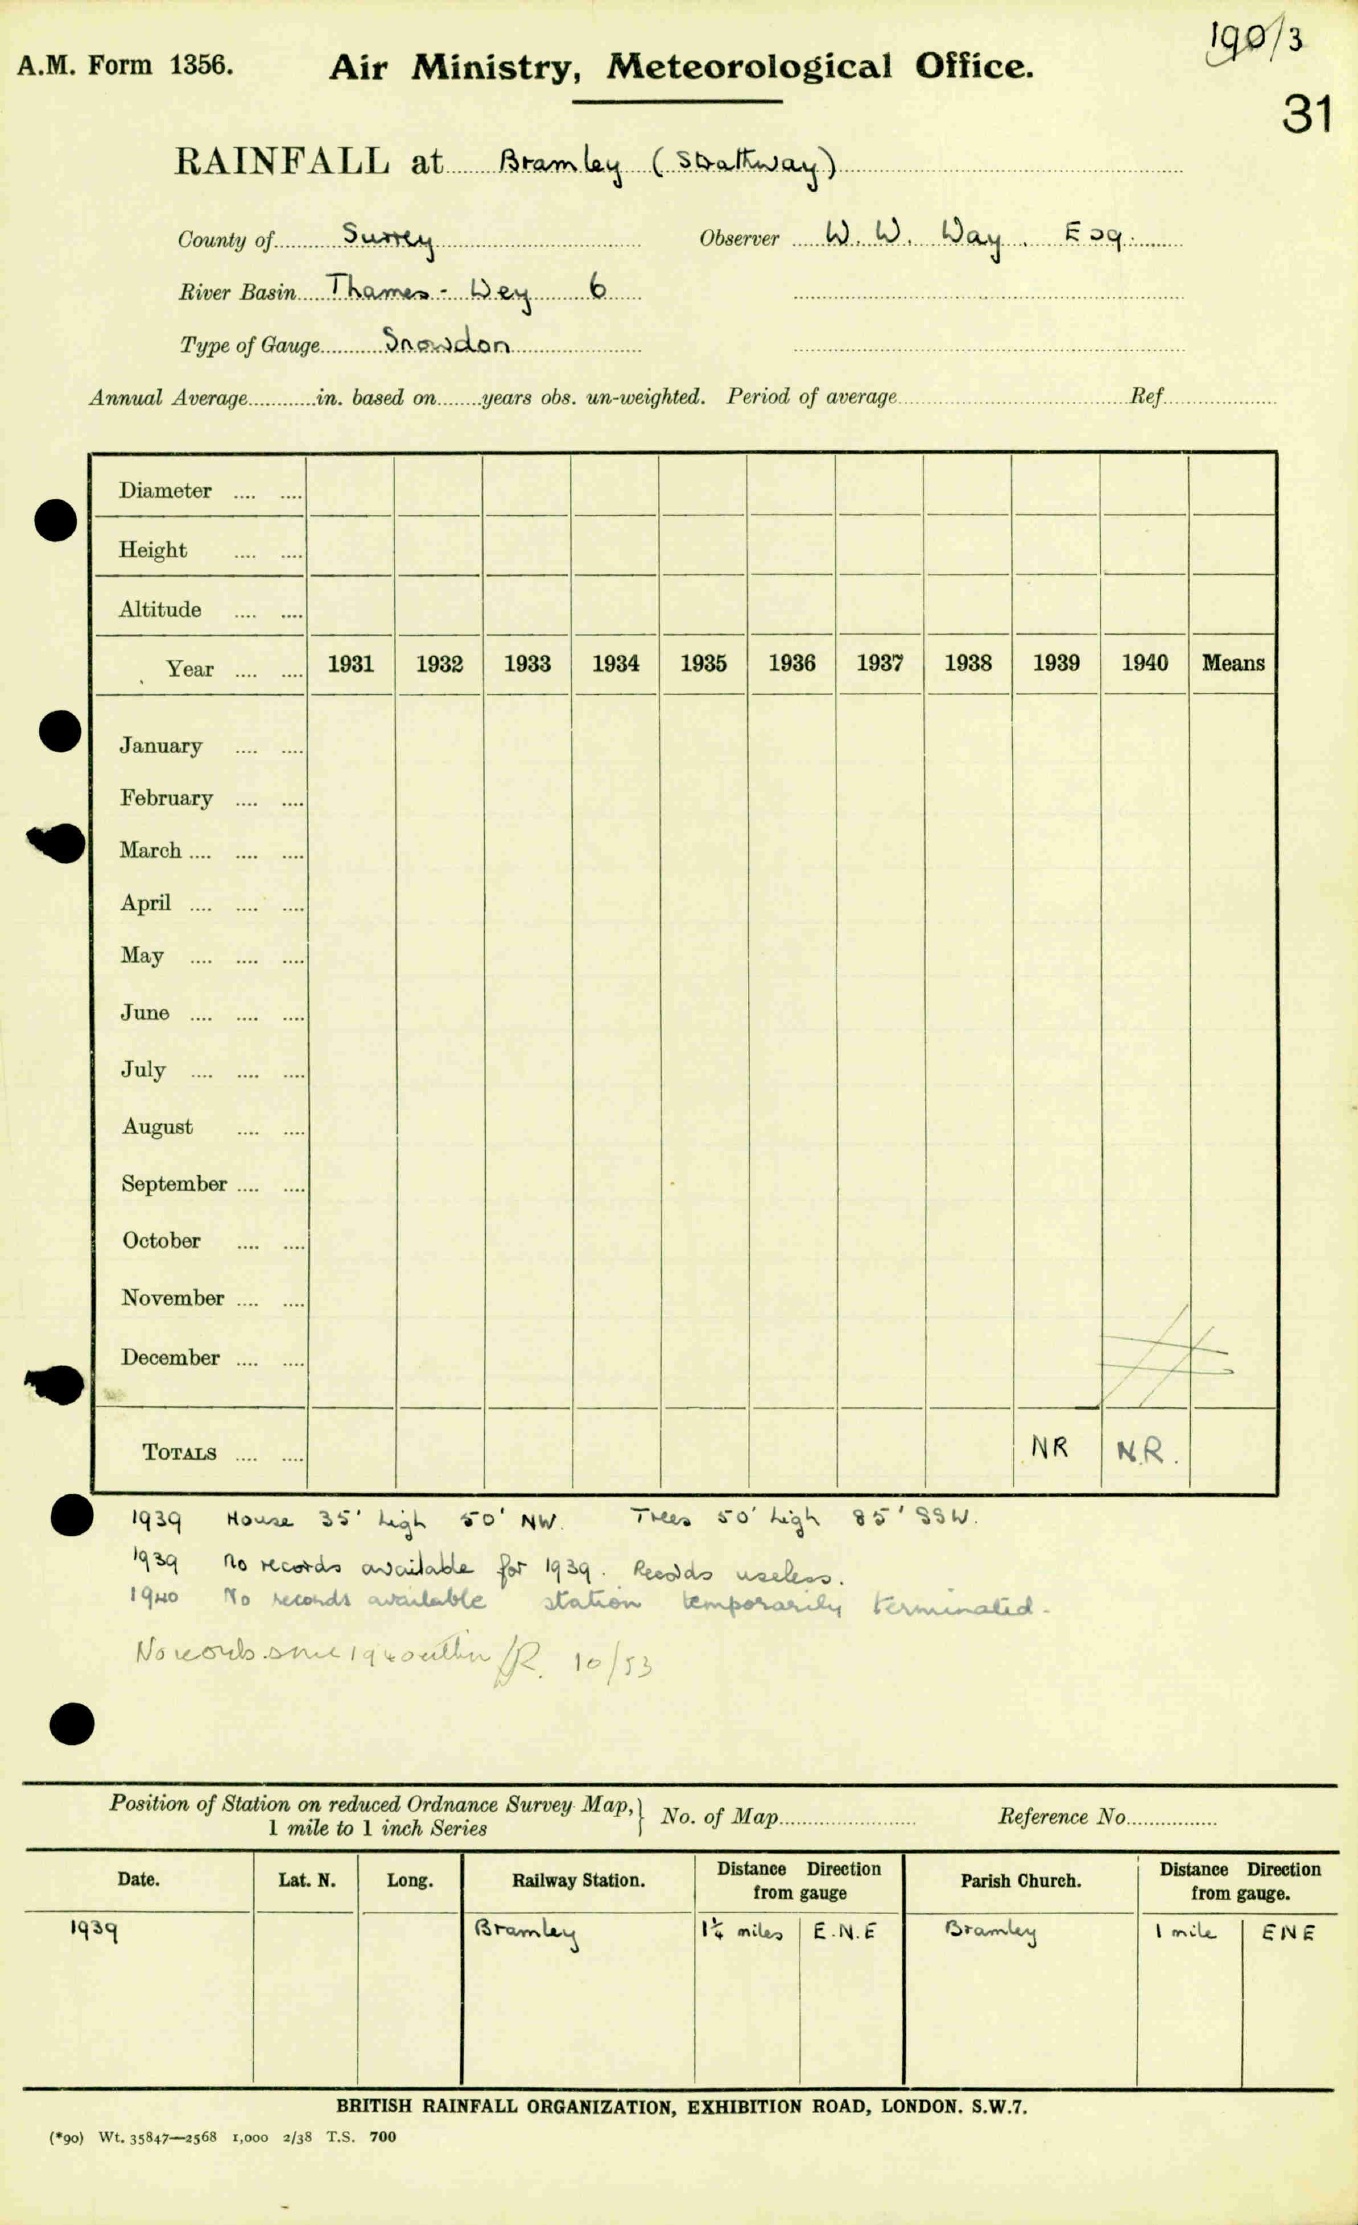 190/3
A.M. Form 1356. Air Ministry, Meteorological Office.
31
RAINFALL at Bramley (Strathway)
County of Surrey Observer W. W. Way. Esq.
River Basin Thames - Wey 6
Type of Gauge Snowdon
Annual Average in. based on years obs. un-weighted. Period of average Ref.
Diameter
Height
Altitude
Year 1931 1932 1933 1934 1935 1936 1937 1938 1939 1940 Means
January
February
March
April
May
June
July
August
September
October
November
December
TOTALS NR N.R.
1939 House 35' high 50' NW. Trees 50' high 85' SSW.
1939 No records available for 1939. Records useless.
1940 No records available station temporarily terminated.
No records since 1940 10/53
Position of Station on reduced Ordnance Survey Map, } No. of Map Reference No.
1 mile to 1 inch Series
Date. Lat. N. Long. Railway Station. Distance Direction from gauge Parish Church. Distance Direction from gauge.
1939 Bramley 1¼ miles E.N.E Bramley 1 mile ENE
BRITISH RAINFALL ORGANIZATION, EXHIBITION ROAD, LONDON. S.W.7.
(*90) Wt. 35847—2568 1,000 2/38 T.S. 700